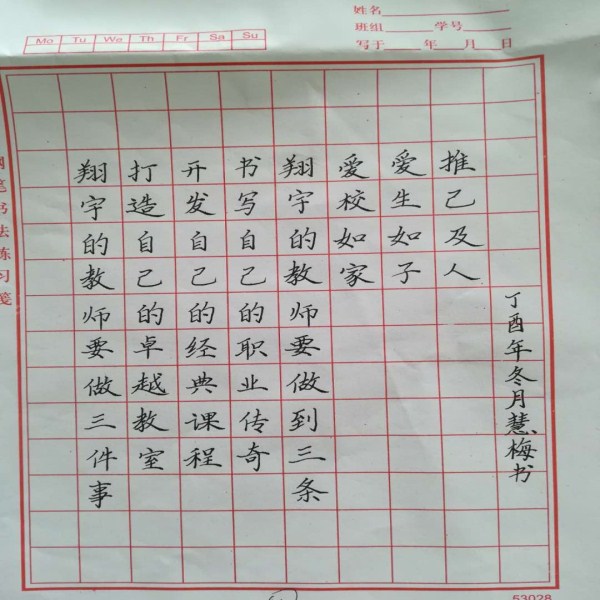 姓名
班组 学号
写于 年 月 日
Mo Tu We Th Fr Sa Su
笔书法练习笺
翔宇的教师要做三件事
打造自己的卓越教室
开发自己的经典课程
书写自己的职业传奇
翔宇的教师要做到三条
爱校如家
爱生如子
推己及人
丁酉年冬月慧梅书
53028